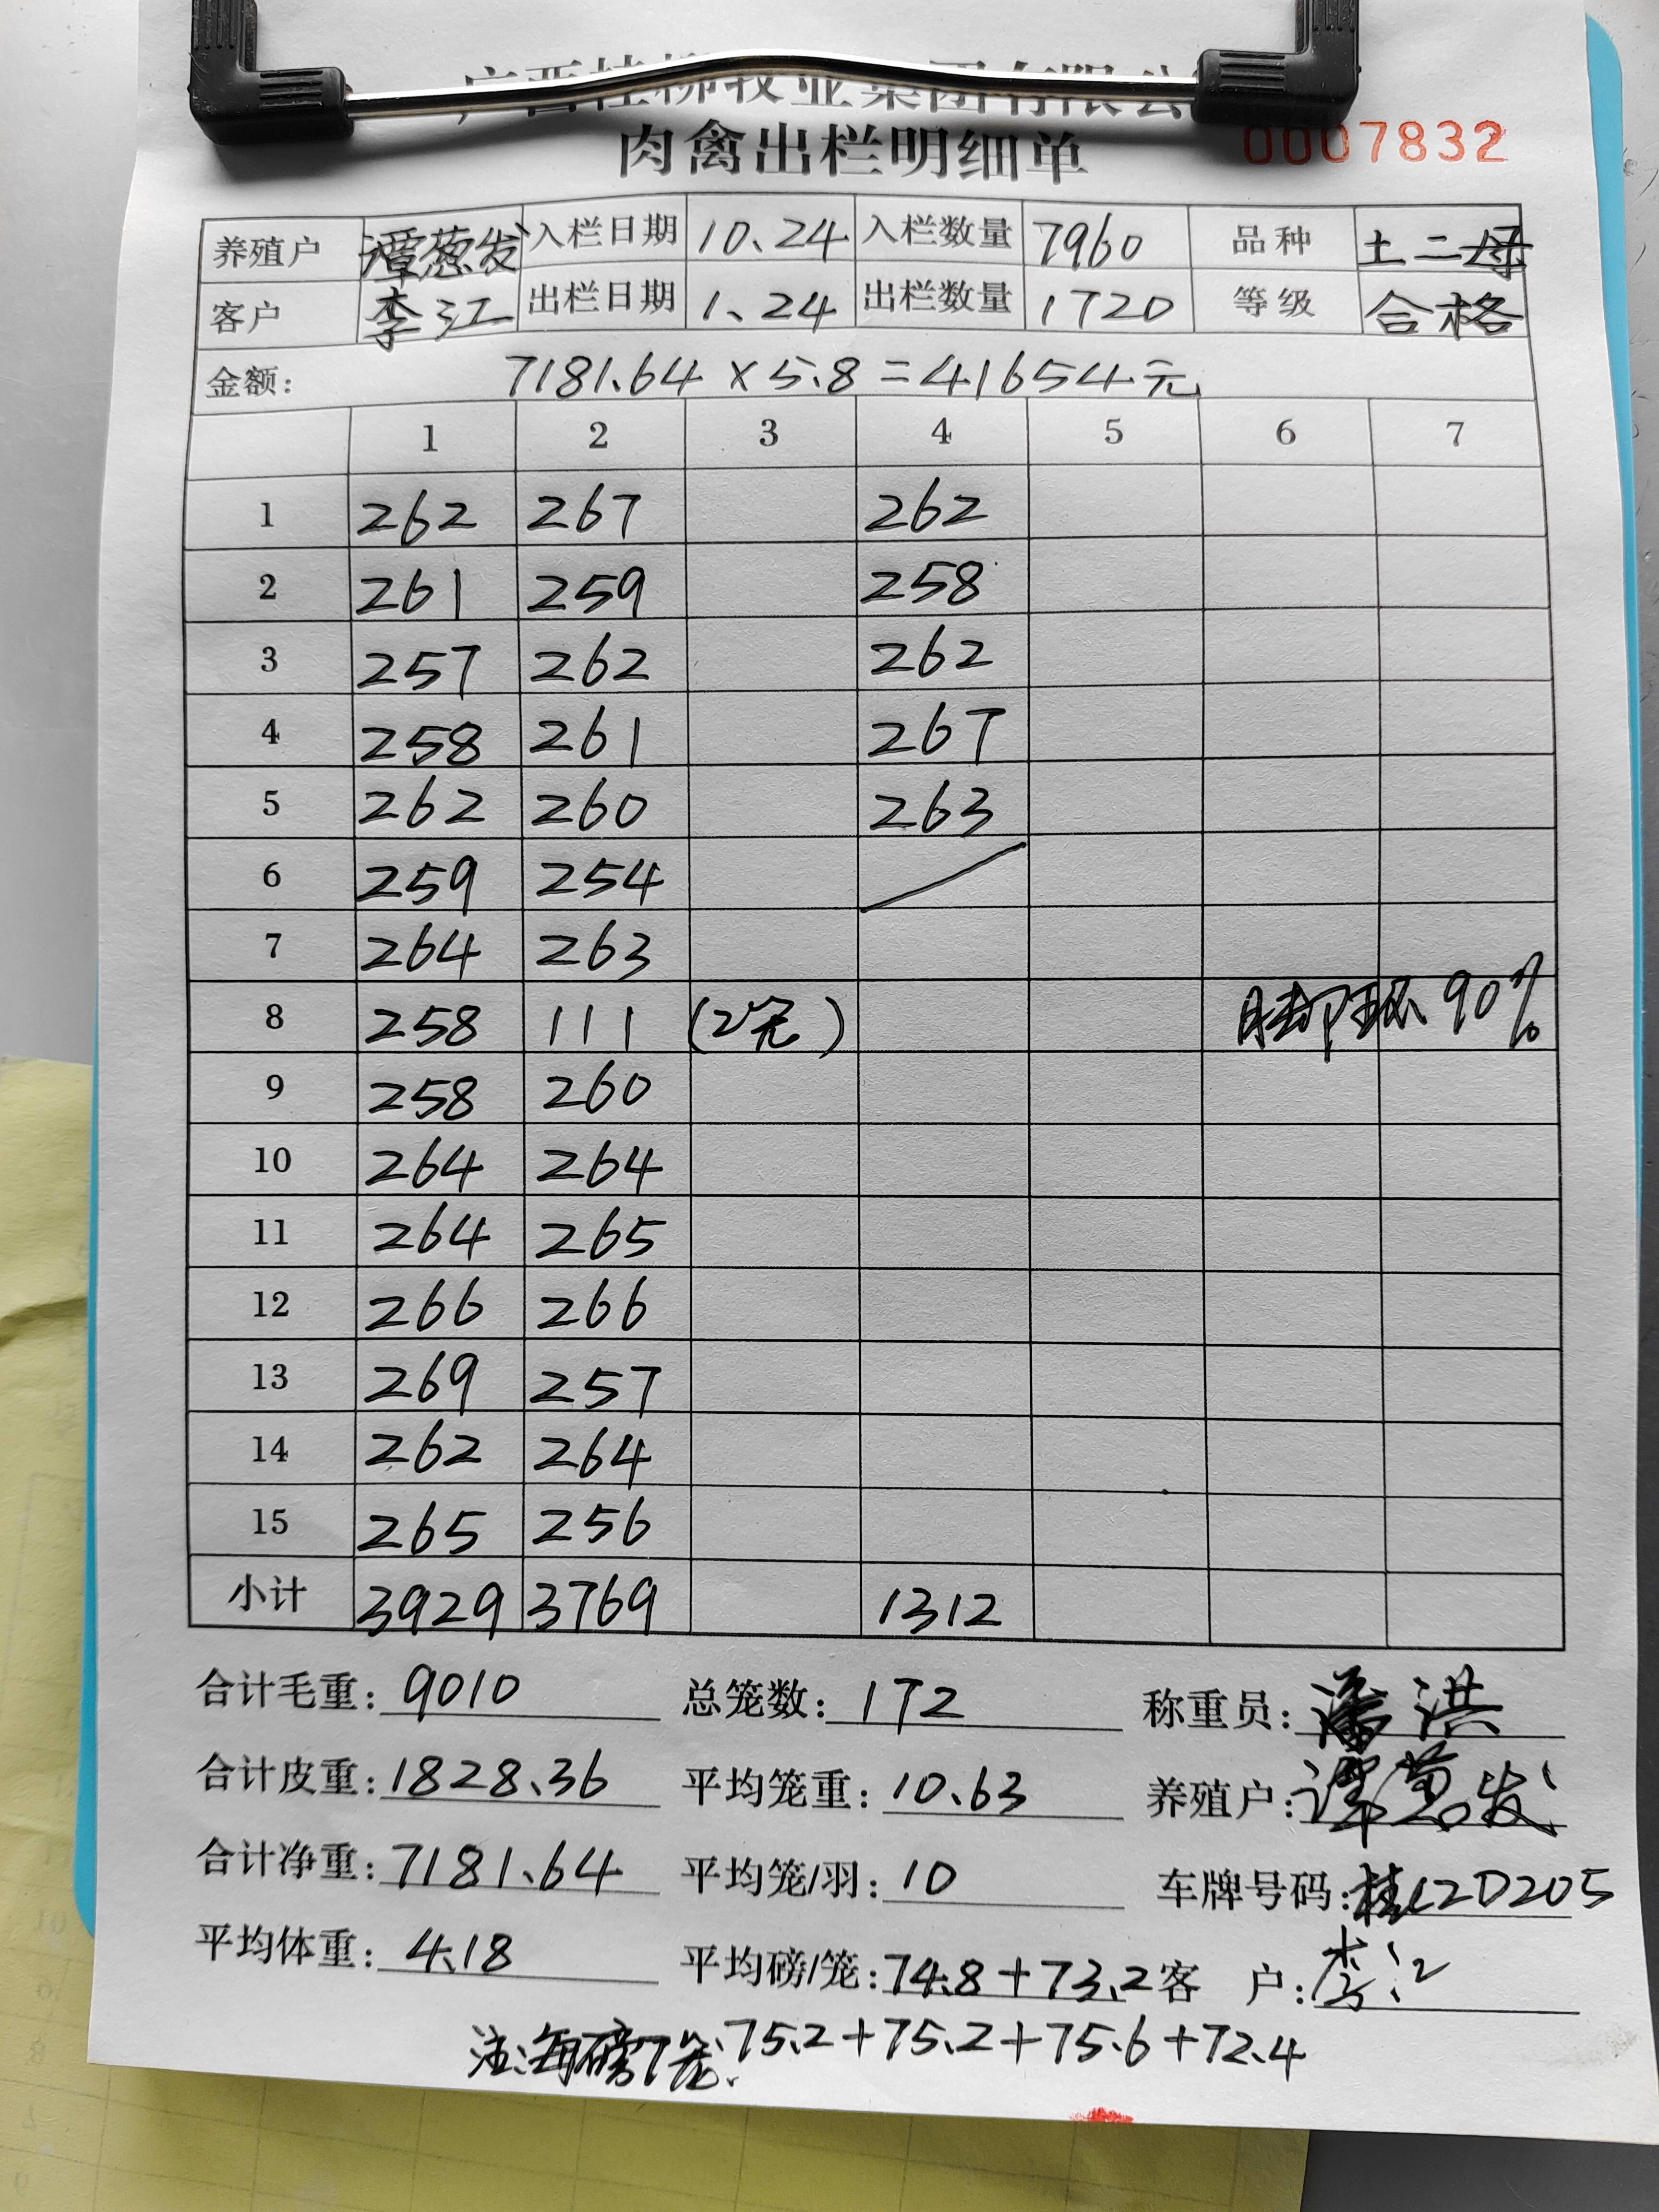 广西桂柳牧业集团有限公
肉禽出栏明细单
0007832
养殖户 谭葱发 入栏日期 10.24 入栏数量 7960 品种 土二母
客户 李江 出栏日期 1.24 出栏数量 1720 等级 合格
金额: 7181.64×5.8=41654元
1 2 3 4 5 6 7
1 262 267 262
2 261 259 258
3 257 262 262
4 258 261 267
5 262 260 263
6 259 254
7 264 263
8 258 111 (2笼) 脚环90%
9 258 260
10 264 264
11 264 265
12 266 266
13 269 257
14 262 264
15 265 256
小计 3929 3769 1312
合计毛重: 9010 总笼数: 172 称重员: 潘洪
合计皮重: 1828.36 平均笼重: 10.63 养殖户: 谭葱发
合计净重: 7181.64 平均笼/羽: 10 车牌号码: 桂C2D205
平均体重: 4.18 平均磅/笼: 74.8+73.2 客 户: 李江
注:每磅7笼. 75.2+75.2+75.6+72.4